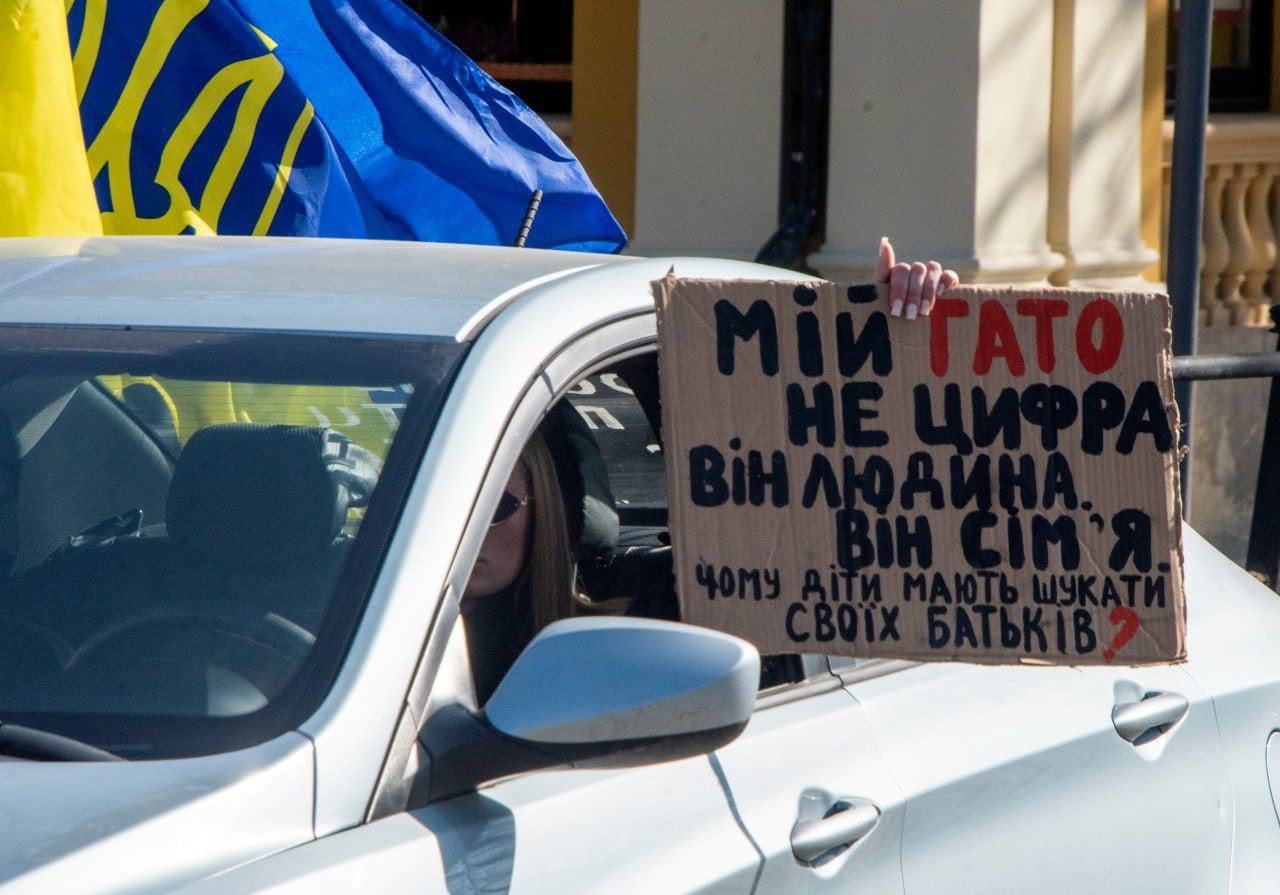 МІЙ ТАТО
НЕ ЦИФРА
ВІН ЛЮДИНА.
ВІН СІМ'Я.
ЧОМУ ДІТИ МАЮТЬ ШУКАТИ
СВОЇХ БАТЬКІВ?